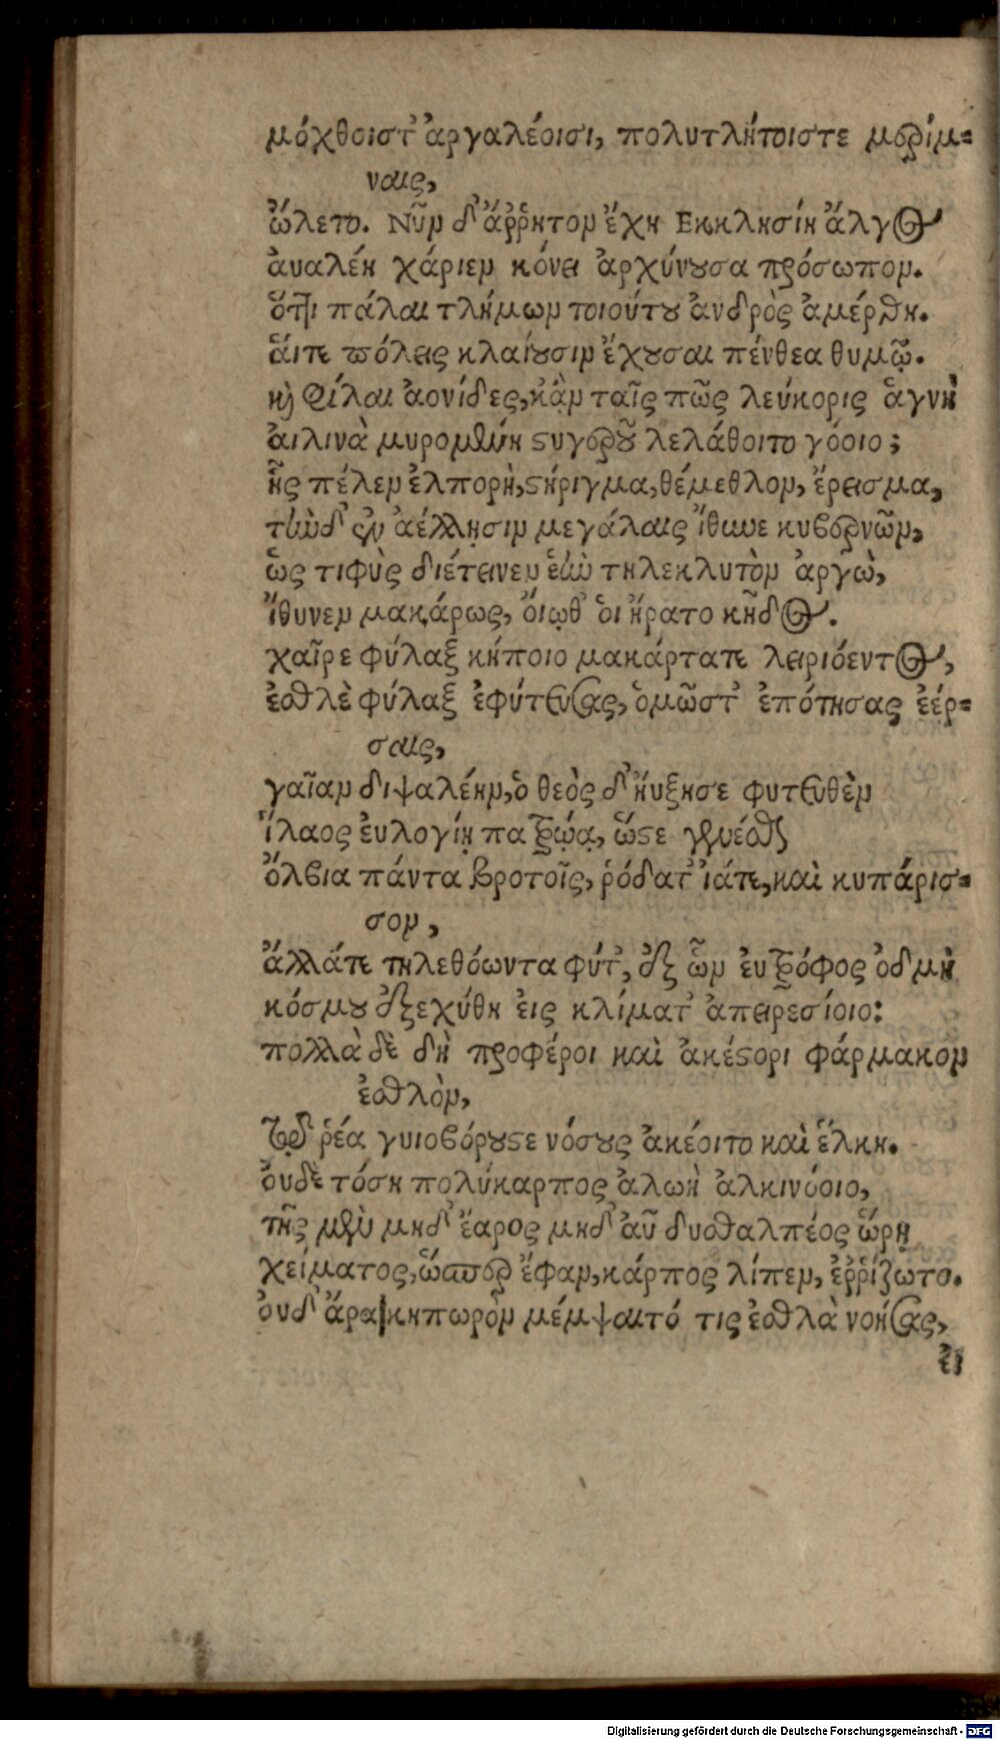 μόχθοιστ' ἀργαλέοισι, πολυτλήτοιστε μερίμ=
ναις,
ὤλετο. Νῦν δ' ἄῤῥητον ἔχη Εκκλησίη ἄλγος
ἀυαλέη χάριεν κόνει ἀρχύνουσα πρόσωπον.
ὅττι πάλαι τλήμων τοιούτου ἀνδρὸς ἀμέρθη.
ἅιτε πόλεις κλαίουσιν ἔχουσαι πένθεα θυμῷ.
καὶ φίλαι ἀονίδες, κᾂν ταῖς πῶς λεύκορις ἁγνὴ
ἀιλινὰ μυρομένη στυγεροῦ λελάθοιτο γόοιο;
ἧς πέλεν ἐλπορὴ, στήριγμα, θέμεθλον, ἔρεισμα,
τὴνδ' ἐν ἀέλλῃσιν μεγάλαις ἴθυνε κυβερνῶν,
ὥς τιφὺς διέτεινεν ἑὴν τηλεκλυτὸν ἀργὼ,
ἴθυνεν μακάρως, ὄιῳθ' ὁι ἤρατο κῆδος.
χαῖρε φύλαξ κήποιο μακάρτατε λειριόεντος,
ἐσθλὲ φύλαξ ἐφύτευσας, ὁμῶστ' ἐπότησας ἐέρ=
σαις,
γαῖαν διψαλέην, ὁ θεὸς δ' ἤυξησε φυτευθὲν
ἵλαος ἐυλογίῃ πατρῴᾳ, ὥστε γενέσθαι
ὄλβια πάντα βροτοῖς, ῥόδατ' ἰάτε, καὶ κυπάρισ=
σον,
ἄλλάτε τηλεθόωντα φύτ', ἐξ ὧν ἐυτρόφος ὀδμὴ
κόσμου ἐξεχύθη ἐις κλίματ' ἀπειρεσίοιο:
πολλὰ δὲ δὴ προφέροι καὶ ἀκέστορι φάρμακον
ἐσθλὸν,
τῷδ' ῥέα γυιοβόρουστε νόσους ἀκέοιτο καὶ ἕλκη.
ὀυδὲ τόση πολύκαρπος ἀλωὴ ἀλκινόοιο,
τῆς μὲν μηδ' ἔαρος μηδ' ἀῦ δυσθαλπέος ὥρῃ
χείματος, ὥσπερ ἔφαν, κάρπος λίπεν, ἐῤῥίζωτο.
ὀυδ' ἄρα κηπωρὸν μέμψαιτό τις ἐσθλὰ νοήσας,
ἐι
Digitalisierung gefördert durch die Deutsche Forschungsgemeinschaft - DFG